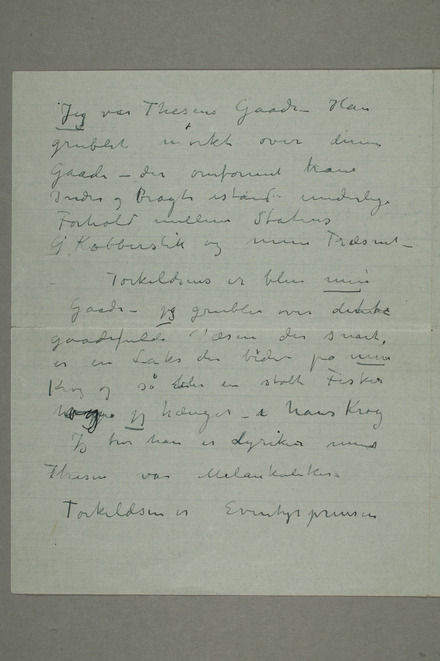 Jeg var Thesens Gaade Han
grublet mørkt over denne
Gaade – der omformet hans
Indre og Bragte istand underlige
Forhold mellem Statens
Kobberstik og mine Træsnit –
Torkildsens er blev min
Gaade – jeg grubler over dette
gaadefulde Væsen der snart
er en Laks der bider på min
Krog og så en stolt Fisker
jeg hænger i hans Krog
Jeg tror han er Lyriker mens
Thesen var Melankoliker
Torkildsen er Eventyrprinsen